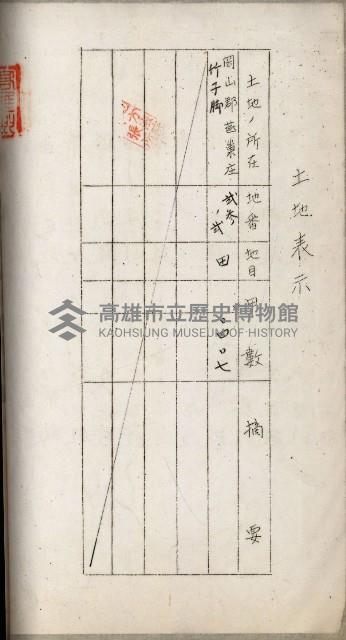 土地表示
土地ノ所在 地番 地目 甲數 摘要
岡山郡茄萣庄 弐参 田 、四〇七
竹子脚 ノ弐
高雄市立歷史博物館
KAOHSIUNG MUSEUM OF HISTORY